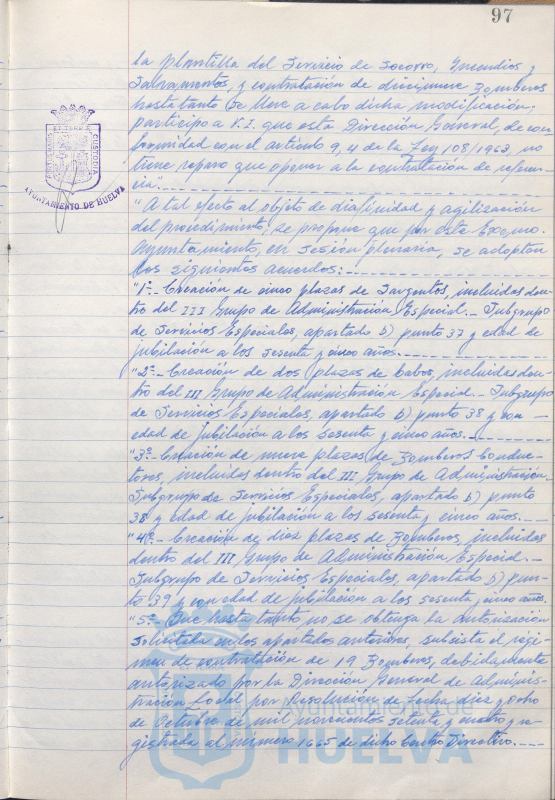 97
la plantilla del Servicio de Socorro, Incendios y
Salvamentos, y contratación de diecinueve Bomberos
hasta tanto se lleve a cabo dicha modificación;
participo a V.I. que esta Dirección General, de con-
formidad con el artículo 9, 4 de la Ley 108/1963 no
tiene reparo que oponer a la contratación de referen-
cia".
"A tal efecto al objeto de diafinidad y agilización
del procedimiento, se propone que por este Excmo.
Ayuntamiento, en sesión plenaria, se adopten
los siguientes acuerdos:
"1º.- Creación de cinco plazas de Sargentos, incluidas den-
tro del III Grupo de Administración Especial.- Subgrupo
de Servicios Especiales, apartado b) punto 37 y edad de
jubilación a los sesenta y cinco años.
"2º.- Creación de dos plazas de Cabos, incluidas den-
tro del III Grupo de Administración Especial.- Subgrupo
de Servicios Especiales, apartado b) punto 38 y con
edad de jubilación a los sesenta y cinco años.
"3º.- Creación de nueve plazas de Bomberos Conduc-
tores, incluidas dentro del III Grupo de Administración.
Subgrupo de Servicios Especiales, apartado b) punto
38 y edad de jubilación a los sesenta y cinco años.
"4º.- Creación de diez plazas de Bomberos, incluidas
dentro del III Grupo de Administración Especial.-
Subgrupo de Servicios Especiales, apartado b) pun-
to 39 y con edad de jubilación a los sesenta y cinco años.
"5º.- Que hasta tanto no se obtenga la autorización
solicitada en los apartados anteriores, subsista el régi-
men de contratación de 19 Bomberos, debidamente
autorizado por la Dirección General de Adminis-
tración Local por Resolución de fecha diez y ocho
de Octubre de mil novecientos setenta y cuatro y re-
gistrada al número 1665 de dicho Centro Directivo.
CUSTODIA
AYUNTAMIENTO DE HUELVA
Ayuntamiento de
HUELVA